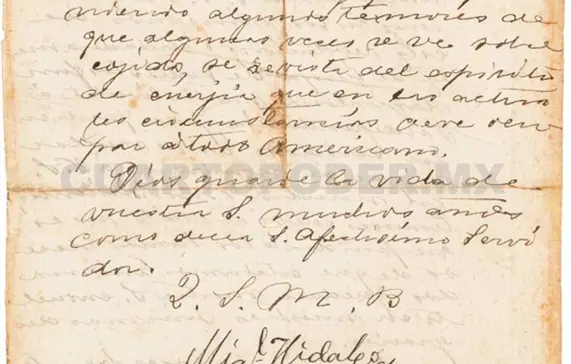 niendo algunos temores de
que algunas veces se ve sobre
cojido, se revista del espiritu
de energia que en las actua
les circunstancias deve ocu
par á todo Americano.
Dios guarde la vida de
vuestra S. muchos años
como decea S. afectisimo Servi
dor.
Q. S. M. B
Migl. Hidalgo
CUARTOPODER.MX